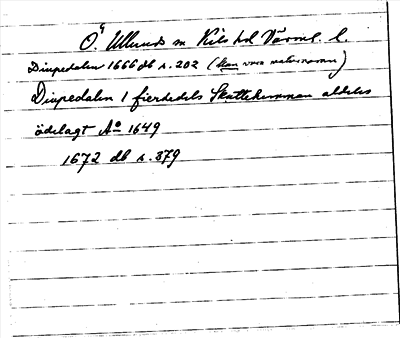 Ö. Ullerud sn Kils hd Värml. l.
Diupedalen 1666 db s. 202 (kan vara naturnamn)
Diupedalen 1 fierdedels Skattehemman aldeles
ödelagt Aº 1649
1672 db s. 379